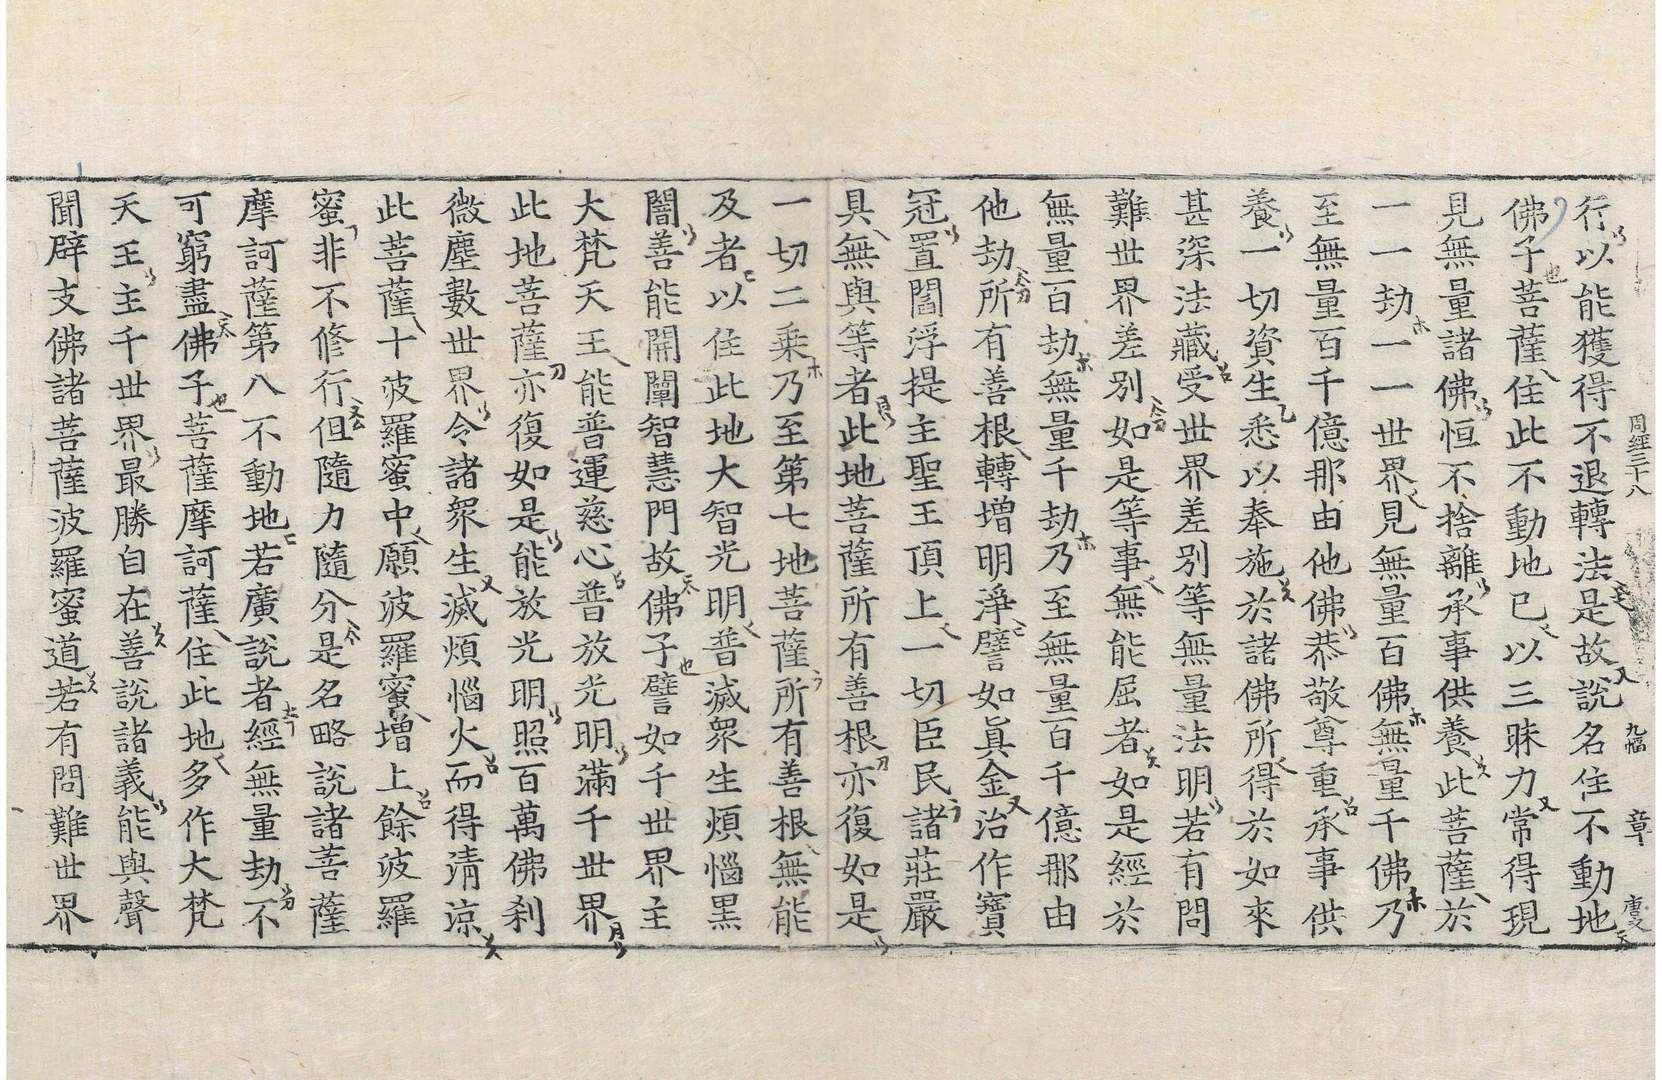 周經三十八 九幅 章
行以能獲得不退轉法是故說名住不動地
佛子菩薩住此不動地已以三昧力常得現
見無量諸佛恒不捨離承事供養此菩薩於
一一劫一一世界見無量百佛無量千佛乃
至無量百千億那由他佛恭敬尊重承事供
養一切資生悉以奉施於諸佛所得於如來
甚深法藏受世界差別等無量法明若有問
難世界差別如是等事無能屈者如是經於
無量百劫無量千劫乃至無量百千億那由
他劫所有善根轉增明淨譬如眞金治作寶
冠置閻浮提主聖王頂上一切臣民諸莊嚴
具無與等者此地菩薩所有善根亦復如是
一切二乘乃至第七地菩薩所有善根無能
及者以住此地大智光明普滅眾生煩惱黑
闇善能開闡智慧門故佛子譬如千世界主
大梵天王能普運慈心普放光明滿千世界
此地菩薩亦復如是能放光明照百萬佛刹
微塵數世界令諸眾生滅煩惱火而得清涼
此菩薩十波羅蜜中願波羅蜜增上餘波羅
蜜非不修行但隨力隨分是名略說諸菩薩
摩訶薩第八不動地若廣說者經無量劫不
可窮盡佛子菩薩摩訶薩住此地多作大梵
天王主千世界最勝自在善說諸義能與聲
聞辟支佛諸菩薩波羅蜜道若有問難世界